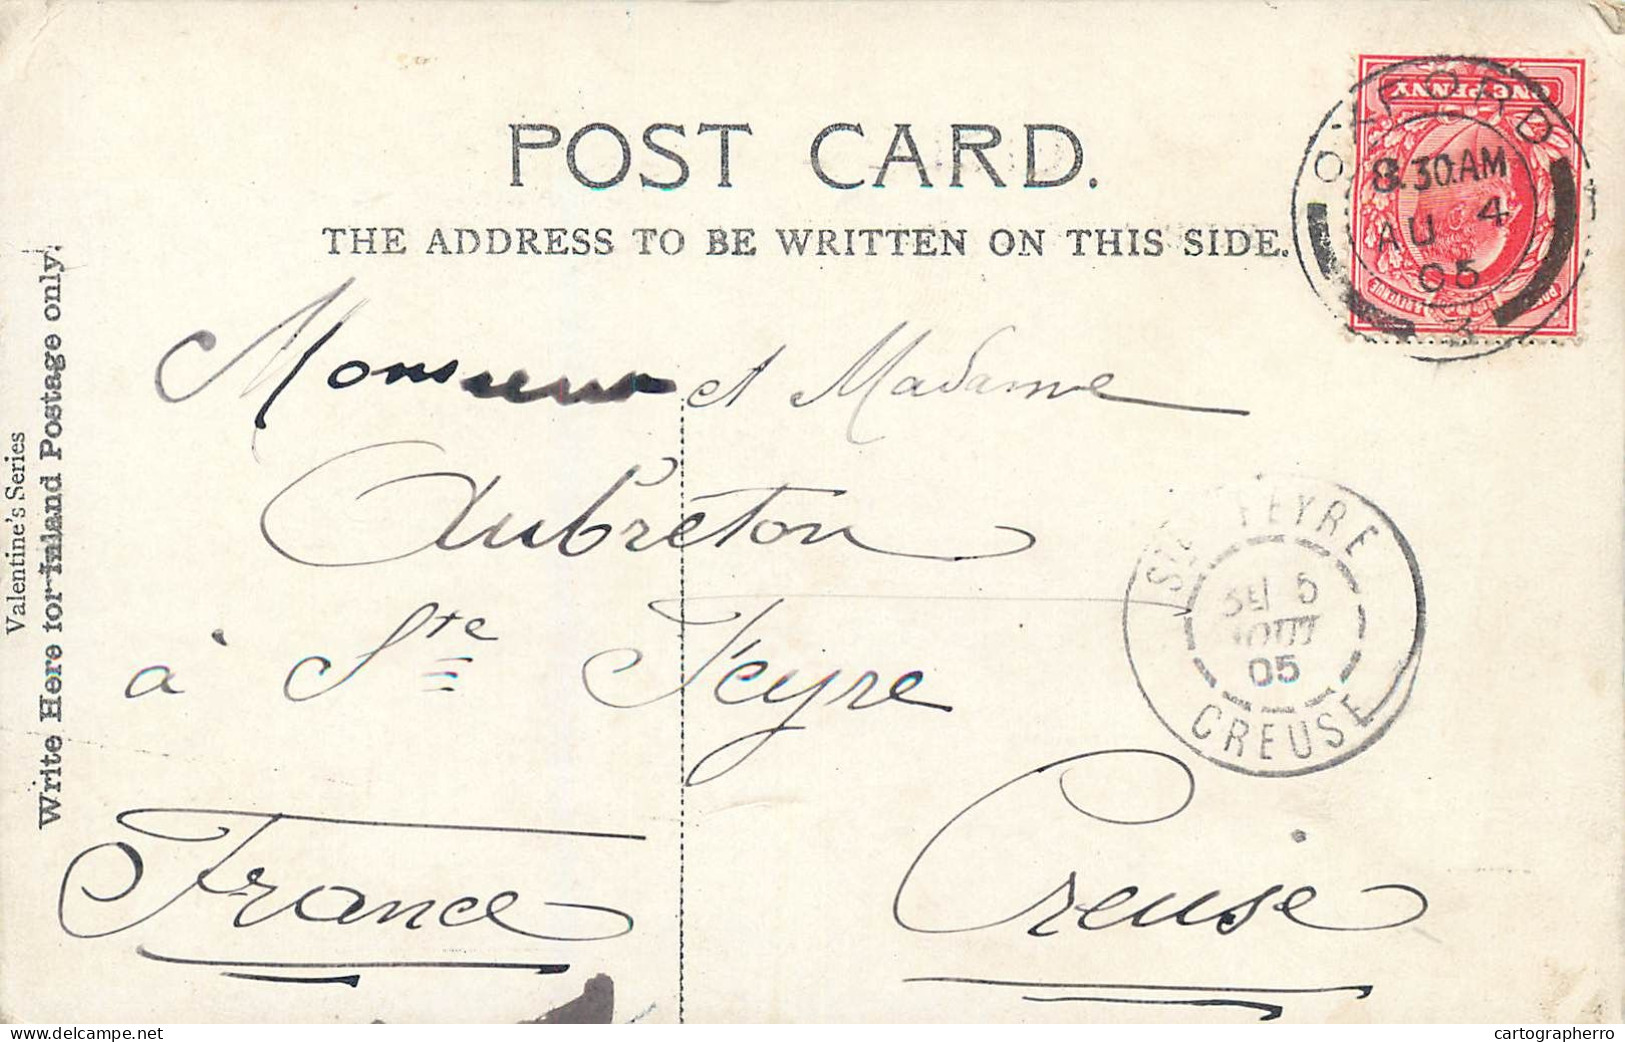 POST CARD.
THE ADDRESS TO BE WRITTEN ON THIS SIDE.
Valentine's Series
Write Here for Inland Postage only.
ONE PENNY
POSTAGE REVENUE
OXFORD
8.30.AM
AU 4
05
3
Monsieur et Madame
Aubreton
à Ste Feyre
France
Creuse
STE FEYRE
5
AOUT
05
CREUSE
delcampe.net
cartographerro